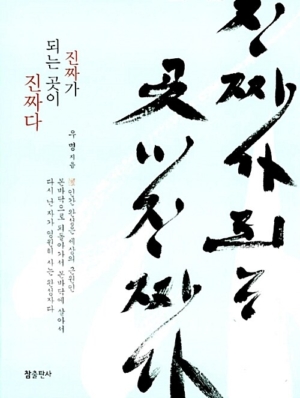 진짜가 되는
곳이 진짜다
진짜가
되는 곳이
진짜다
우 명 지음
인간 완성은 세상의 근원인
본바닥으로 되돌아가서 본바닥에 살아서
다시 난 자가 영원히 사는 완성자다
참출판사